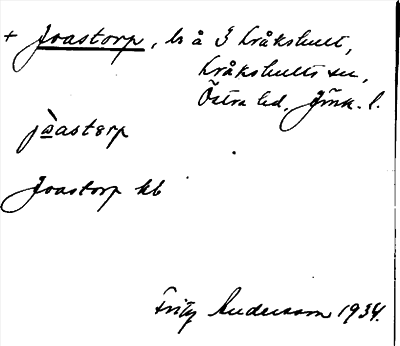 + Joastorp, ls å 3 Lråkshult,
Lråkshults sn,
Östra hd. Jönk. l.
jòastərp
Joastorp kb
Fritz Andersson 1934.